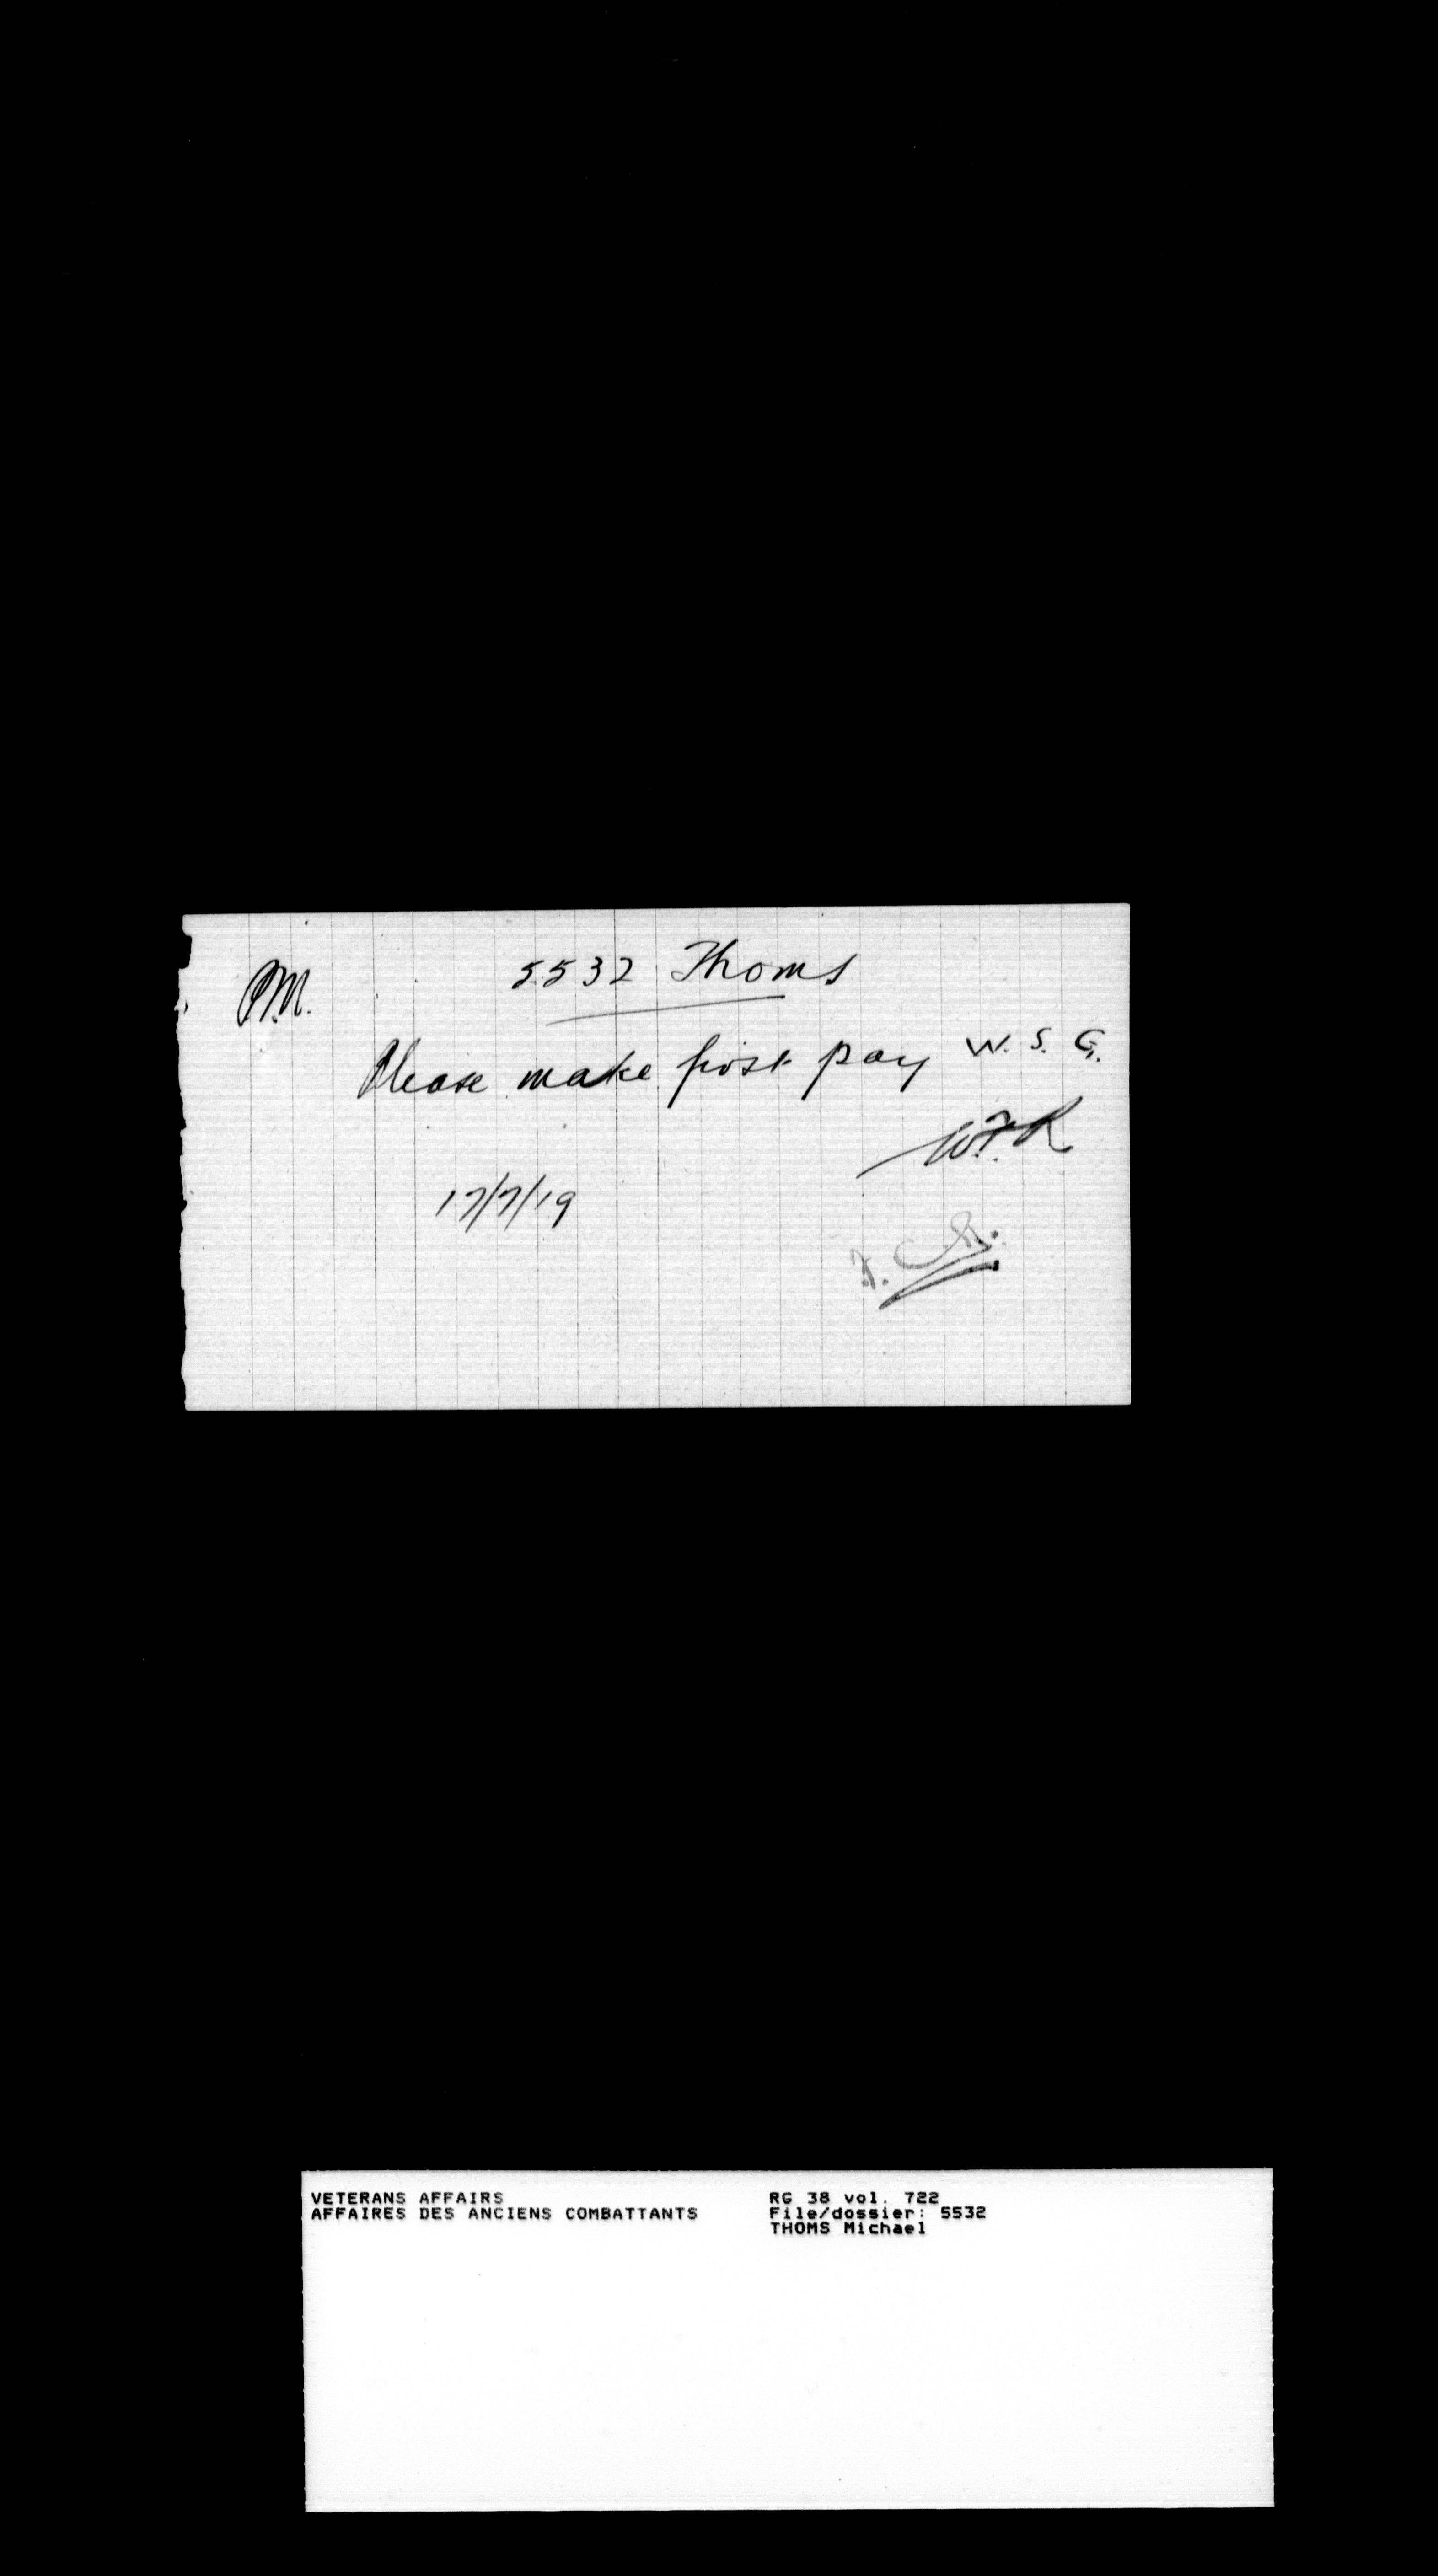 P.M.
5532 Thoms
Please make first pay W. S. G.
W.F.R
17/7/19
VETERANS AFFAIRS
AFFAIRES DES ANCIENS COMBATTANTS
RG 38 vol. 722
File/dossier: 5532
THOMS Michael